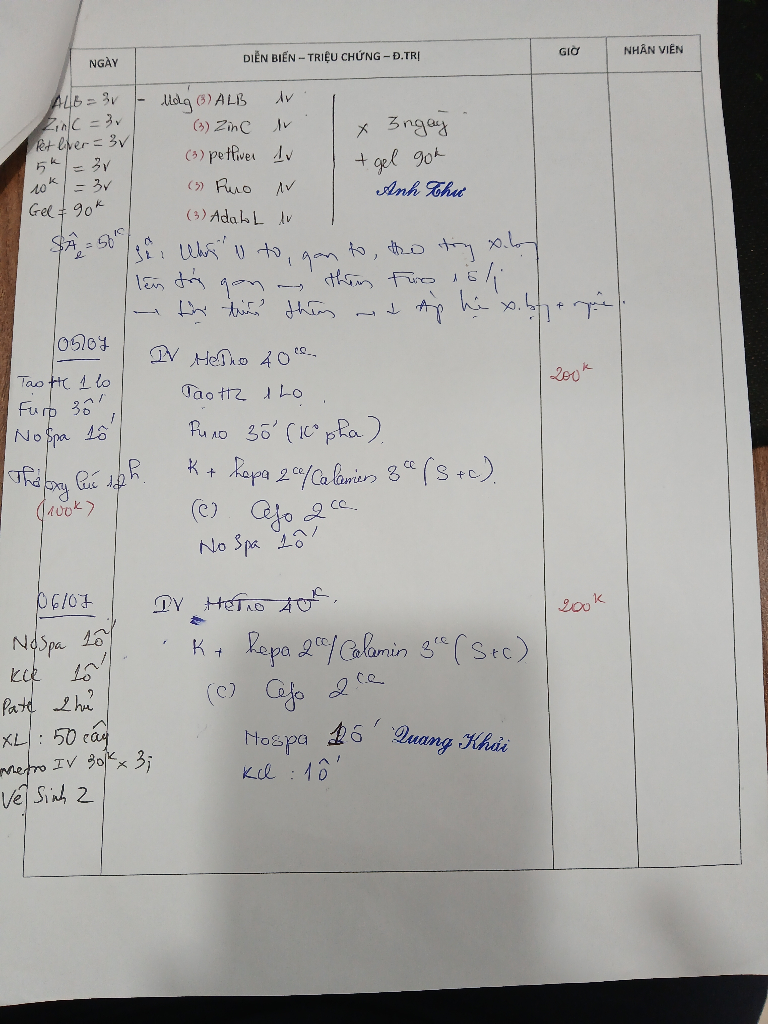 NGÀY DIỄN BIẾN – TRIỆU CHỨNG – Đ.TRỊ GIỜ NHÂN VIÊN
ALB = 3v
ZinC = 3v
Petliver = 3v
5k = 3v
10k = 3v
Gel = 90k
SÂ = 50k
- Uống (3) ALB 1v
(3) ZinC 1v
(3) petliver 1v
(3) Furo 1v
(3) L 1v
x 3 ngày
+ gel 90k
Anh Thư
SÂ: U to, gan to,
lên gan → thêm Furo
→ thêm → ↓ Áp
05/07
Tạo H2 1 lo
Furo 3ố
NoSpa 1ố
Thở oxy lúc 12h
(100k)
IV Metro 40cc
Tạo H2 1 Lọ
Furo 3ố (pha)
K + hepa 2cc/Calamin 3cc (S+C)
(C) Cefo 2cc
NoSpa 1ố
200k
06/07
NoSpa 1ố
Kcl 1ố
Pate 2 hủ
XL : 50 cây
Metro IV 30k x 3
Vệ Sinh 2
IV Metro 40k
K + hepa 2cc/Calamin 3cc (S+C)
(C) Cefo 2cc
Nospa 1ố Quang Khải
Kcl : 1ố
200k